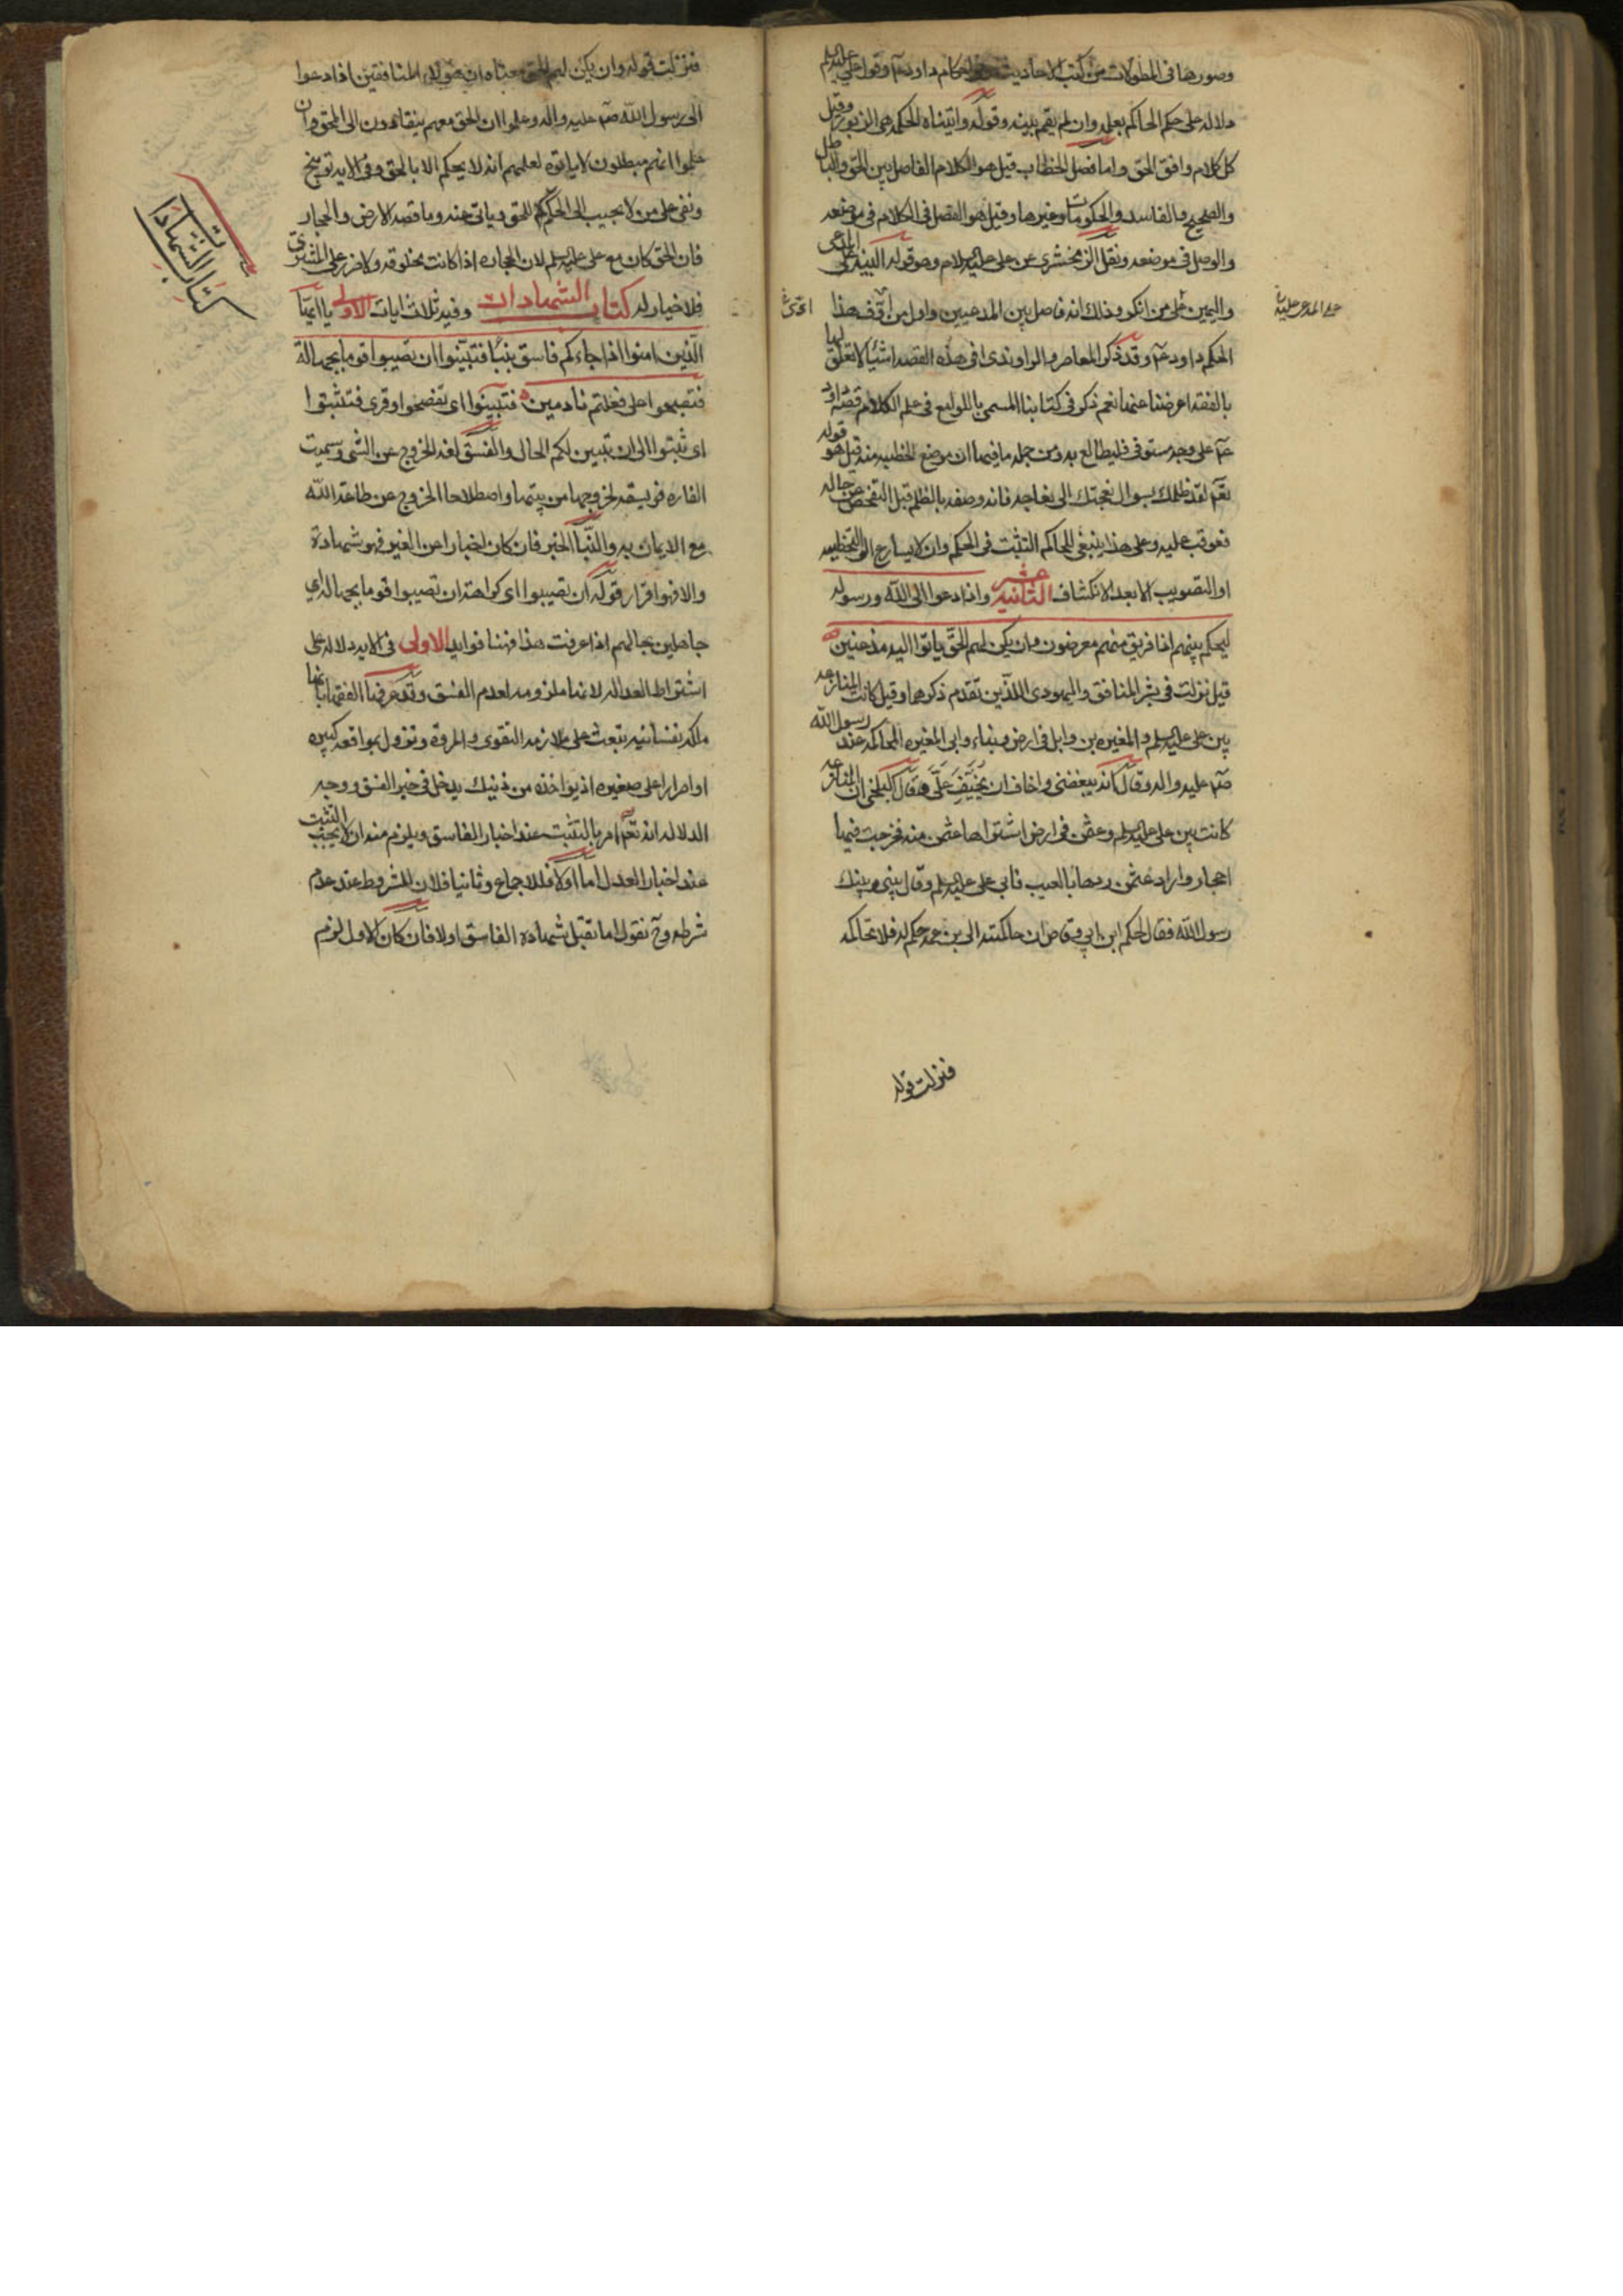 وصورها فى المطولات من كتب الاحاديث احكام داود عم وقول على عليه السلم
دلاله على حكم الحاكم بعلمه وان لم يقم بينه وقوله واتيناه الحكمه هى الزبور وقيل
كل كلام وافق الحق واما فصل الخطاب قيل هو الكلام الفاصل بين الحق والباطل
والصحيح والفاسد والحكومات وغيرها وقيل هو الفصل فى الكلام فى موضعه
والوصل فى موضعه ونقل الزمخشرى عن على عليه السلام وهو قوله البينه على المدعى
واليمين على من انكر وذلك انه فاصل بين المدعيين واول من هذا
على المدعى عليه
الحكم داود عم وقد ذكر المعاصر والراوندى فى هذه القصه اشيا لا تعلق لها
بالفقه اعرضنا عنها نعم ذكر فى كتابنا المسمى باللوامع فى علم الكلام قصه داود
عم على وجه مستوفى فليطالع به ومن جمله ما فيها ان موضع الخطيه منه قيل هو قوله
لقد ظلمك بسوال نعجتك الى نعاجه فانه وصفه بالظلم قبل التفحص عن حاله
فعوقب عليه وعلى هذا ينبغى للحاكم التثبت فى الحكم وان لا يسارع الى التخطيه
او التصويب الا بعد الانكشاف الثانيه عشر واذا دعوا الى الله ورسوله
ليحكم بينهم اذا فريق منهم معرضون وان يكن لهم الحق ياتوا اليه مذعنين
قيل نزلت فى بشر المنافق واليهودى اللذين تقدم ذكرهما وقيل كانت المنازعه
بين على عليه السلم والمغيره بن وايل فى ارض وماء وابى المغيره المحاكمه عند رسول الله
صم عليه واله وقال انه يبغضنى واخاف ان يحيف على وقال البلخى ان المنازعه
كانت بين على عليه السلم وعثمن فى ارض اشتراها عثمن منه فخرجت فيها
احجار واراد عثمن ردها بالعيب فابى على عليه السلم وقال بينى وبينك
رسول الله فقال الحكم ابن ابى ان حاكمته الى بن عمه حكم له فلا تحاكمه
فنزلت قوله
فنزلت قوله وان يكن لهم الحق معناه ان هؤلاء المنافقين اذا دعوا
الى رسول الله صم عليه واله وعلموا ان الحق معهم ينقادون الى الحق وان
علموا انهم مبطلون لا ياتوه لعلمهم انه لا يحكم الا بالحق وفى الايه توبيخ
ونعى على من لا يجيب الى الحكم للحق وياتى عنه وما قصه الارض والحجار
فان الحق كان مع على عليه السلم لان الحجاره اذا كانت مخلوقه ولا ضرر على المشترى
فلا خيار له كتاب الشهادات وفيه ثلاث ايات الاولى يا ايها
كتاب الشهادات
الذين امنوا اذا جاءكم فاسق بنبأ فتبينوا ان تصيبوا قوما بجهالة
فتصبحوا على فعلتم نادمين فتبينوا اى تفضحوا وقرى فتثبتوا
اى ثبتوا الى ان تبين لكم الحال والفسق لغه الخروج عن الشى وسميت
الفاره فويسقه لخروجها من بيتها واصطلاحا الخروج عن طاعة الله
مع الايمان به والنبأ الخبر فان كان اخبارا عن الغير فهو شهادة
والا فهو اقرار قوله ان تصيبوا اى كراهة ان تصيبوا قوما بجهاله اى
جاهلين بحالهم اذا عرفت هذا فهنا فوايد الاولى فى الايه دلاله على
اشتراط العداله لانها ملزومه لعدم الفسق وقد عرفها الفقها بانها
ملكه نفسانيه تبعث على ملازمه التقوى والمروة وتزول بمواقعه كبيره
او اصرار على صغيره اذ يواخذه من ذينك يدخل فى حيز الفسق ووجه
الدلاله انه تعم امر بالتثبت عند اخبار الفاسق ويلزم منه ان لا يجب التثبت
عند اخبار العدل اما اولا فللاجماع وثانيا فلان المشروط عند عدم
شرطه وح نقول اما تقبل شهاده الفاسق اولا فان كان الاول لزم